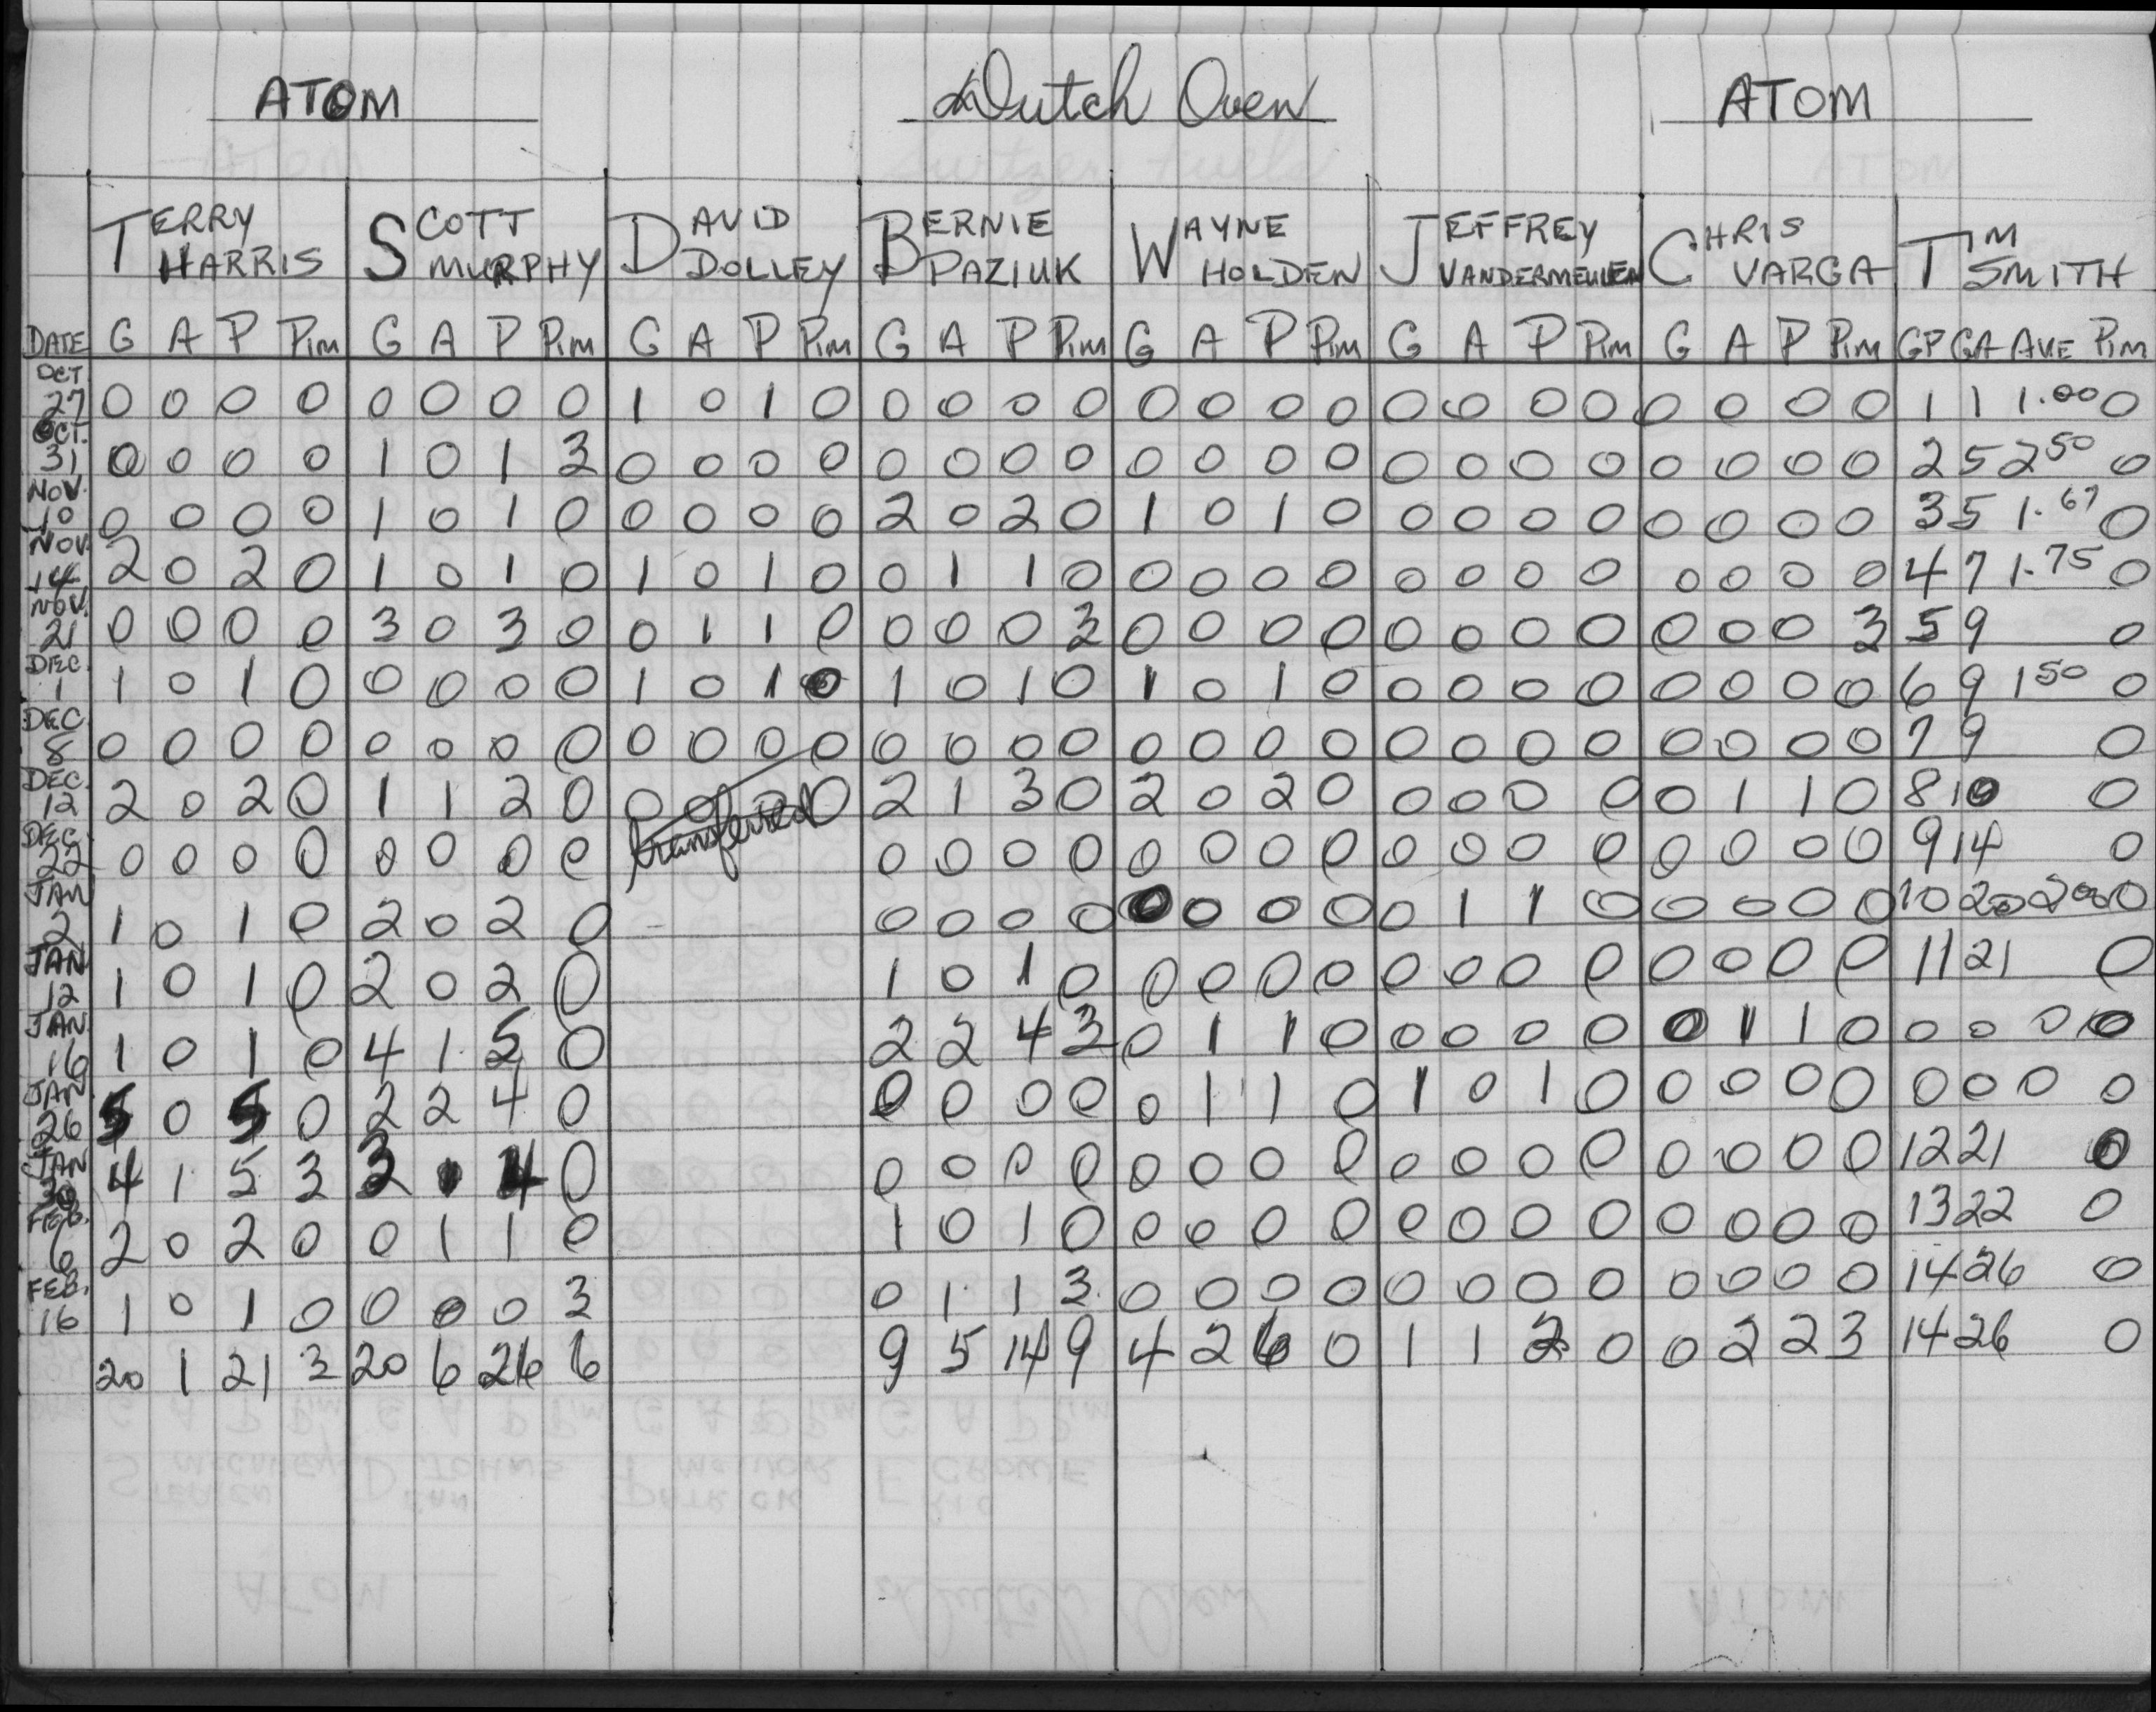 ATOM Dutch Oven ATOM
TERRY HARRIS SCOTT MURPHY DAVID DOLLEY BERNIE PAZIUK WAYNE HOLDEN JEFFREY VANDERMEULEN CHRIS VARGA TIM SMITH
DATE G A P Pim G A P Pim G A P Pim G A P Pim G A P Pim G A P Pim G A P Pim GP GA AVE Pim
OCT. 27 0 0 0 0 0 0 0 0 1 0 1 0 0 0 0 0 0 0 0 0 0 0 0 0 0 0 0 0 1 1 1.00 0
OCT. 31 0 0 0 0 1 0 1 3 0 0 0 0 0 0 0 0 0 0 0 0 0 0 0 0 0 0 0 0 2 5 2 50 0
NOV. 10 0 0 0 0 1 0 1 0 0 0 0 0 2 0 2 0 1 0 1 0 0 0 0 0 0 0 0 0 3 5 1.67 0
NOV. 14 2 0 2 0 1 0 1 0 1 0 1 0 0 1 1 0 0 0 0 0 0 0 0 0 0 0 0 0 4 7 1.75 0
NOV. 21 0 0 0 0 3 0 3 0 0 1 1 0 0 0 0 3 0 0 0 0 0 0 0 0 0 0 0 3 5 9 0
DEC. 1 1 0 1 0 0 0 0 0 1 0 1 0 1 0 1 0 1 0 1 0 0 0 0 0 0 0 0 0 6 9 1 50 0
DEC 8 0 0 0 0 0 0 0 0 0 0 0 0 0 0 0 0 0 0 0 0 0 0 0 0 0 0 0 0 7 9 0
DEC. 12 2 0 2 0 1 1 2 0 0 0 0 0 2 1 3 0 2 0 2 0 0 0 0 0 0 1 1 0 8 10 0
DEC. 22 0 0 0 0 0 0 0 0 transferred 0 0 0 0 0 0 0 0 0 0 0 0 0 0 0 0 9 14 0
JAN 2 1 0 1 0 2 0 2 0 0 0 0 0 0 0 0 0 0 1 1 0 0 0 0 0 10 20 2 00 0
JAN 12 1 0 1 0 2 0 2 0 1 0 1 0 0 0 0 0 0 0 0 0 0 0 0 0 11 21 0
JAN. 16 1 0 1 0 4 1 5 0 2 2 4 3 0 1 1 0 0 0 0 0 0 1 1 0 0 0 0 0
JAN 26 5 0 5 0 2 2 4 0 0 0 0 0 0 1 1 0 1 0 1 0 0 0 0 0 0 0 0 0
JAN 30 4 1 5 3 3 1 4 0 0 0 0 0 0 0 0 0 0 0 0 0 0 0 0 0 12 21 0
FEB. 6 2 0 2 0 0 1 1 0 1 0 1 0 0 0 0 0 0 0 0 0 0 0 0 0 13 22 0
FEB. 16 1 0 1 0 0 0 0 3 0 1 1 3 0 0 0 0 0 0 0 0 0 0 0 0 14 26 0
20 1 21 3 20 6 26 6 9 5 14 9 4 2 6 0 1 1 2 0 0 2 2 3 14 26 0